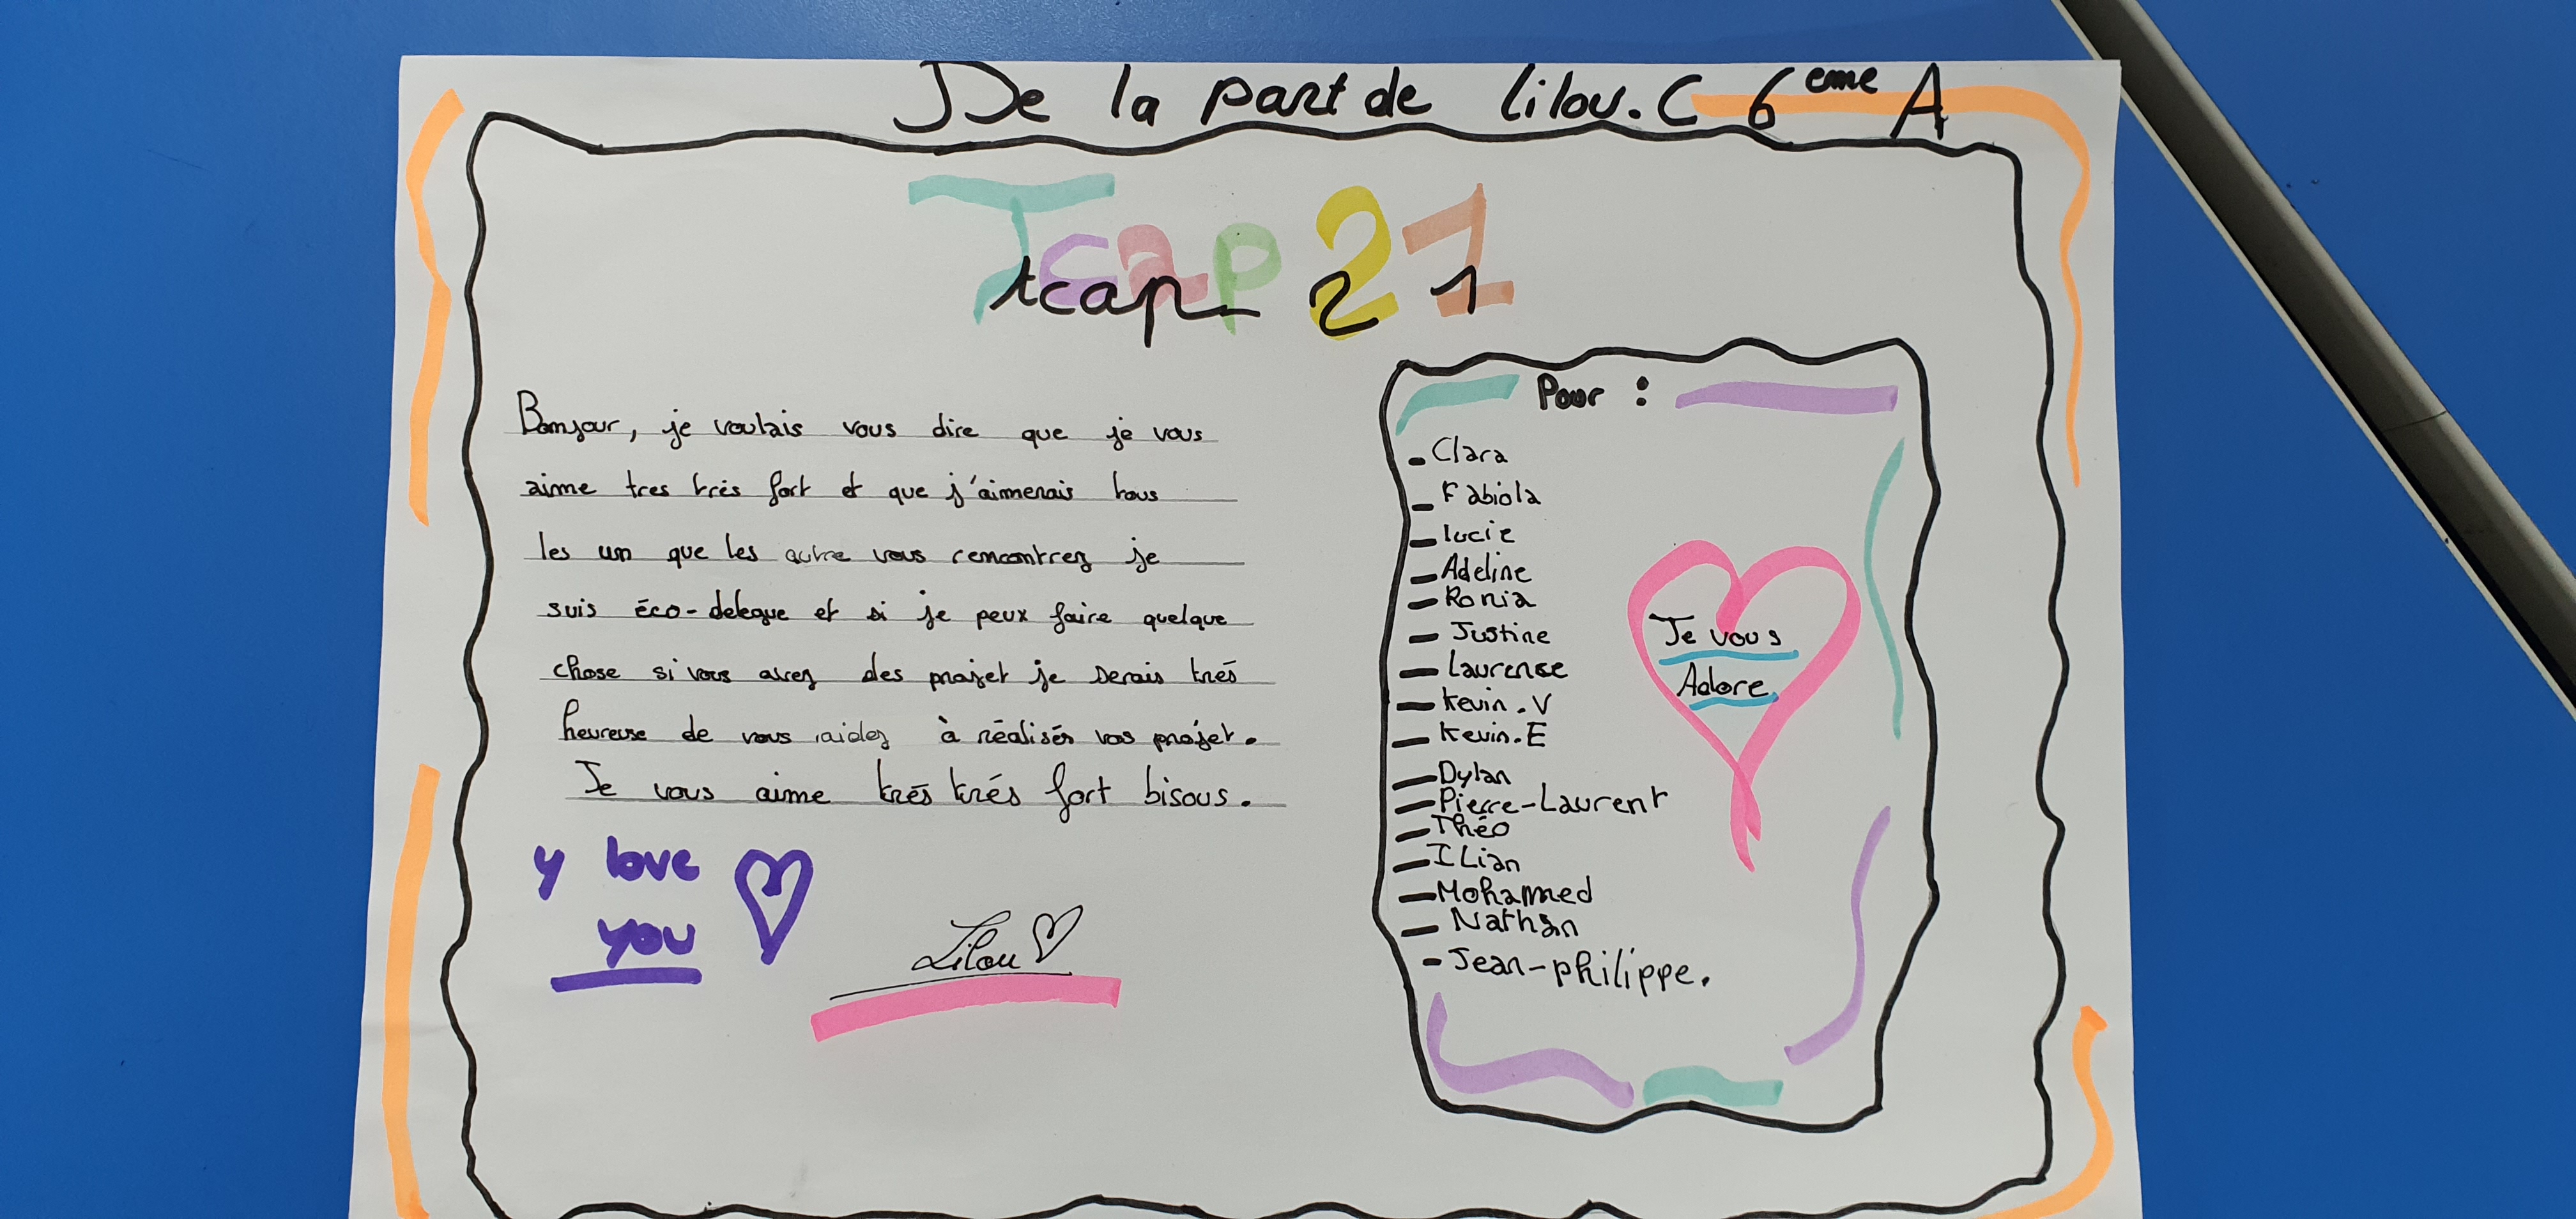 De la part de lilou.C 6eme A
Tcap 21
tcap 21
Bonjour, je voulais vous dire que je vous
aime tres trés fort et que j'aimerais tous
les un que les autre vous rencontrez je
suis éco-delegue et si je peux faire quelque
chose si vous avez des projet je serais trés
heureuse de vous aidez à réalisés vos projet.
Je vous aime trés trés fort bisous.
y love
you
Lilou
Pour :
- Clara
- Fabiola
- lucie
- Adeline
- Ronia
- Justine
- Laurense
- Kevin.V
- Kevin.E
- Dylan
- Pierre-Laurent
- Théo
- ILian
- Mohamed
- Nathan
- Jean-philippe.
Je vous
Adore